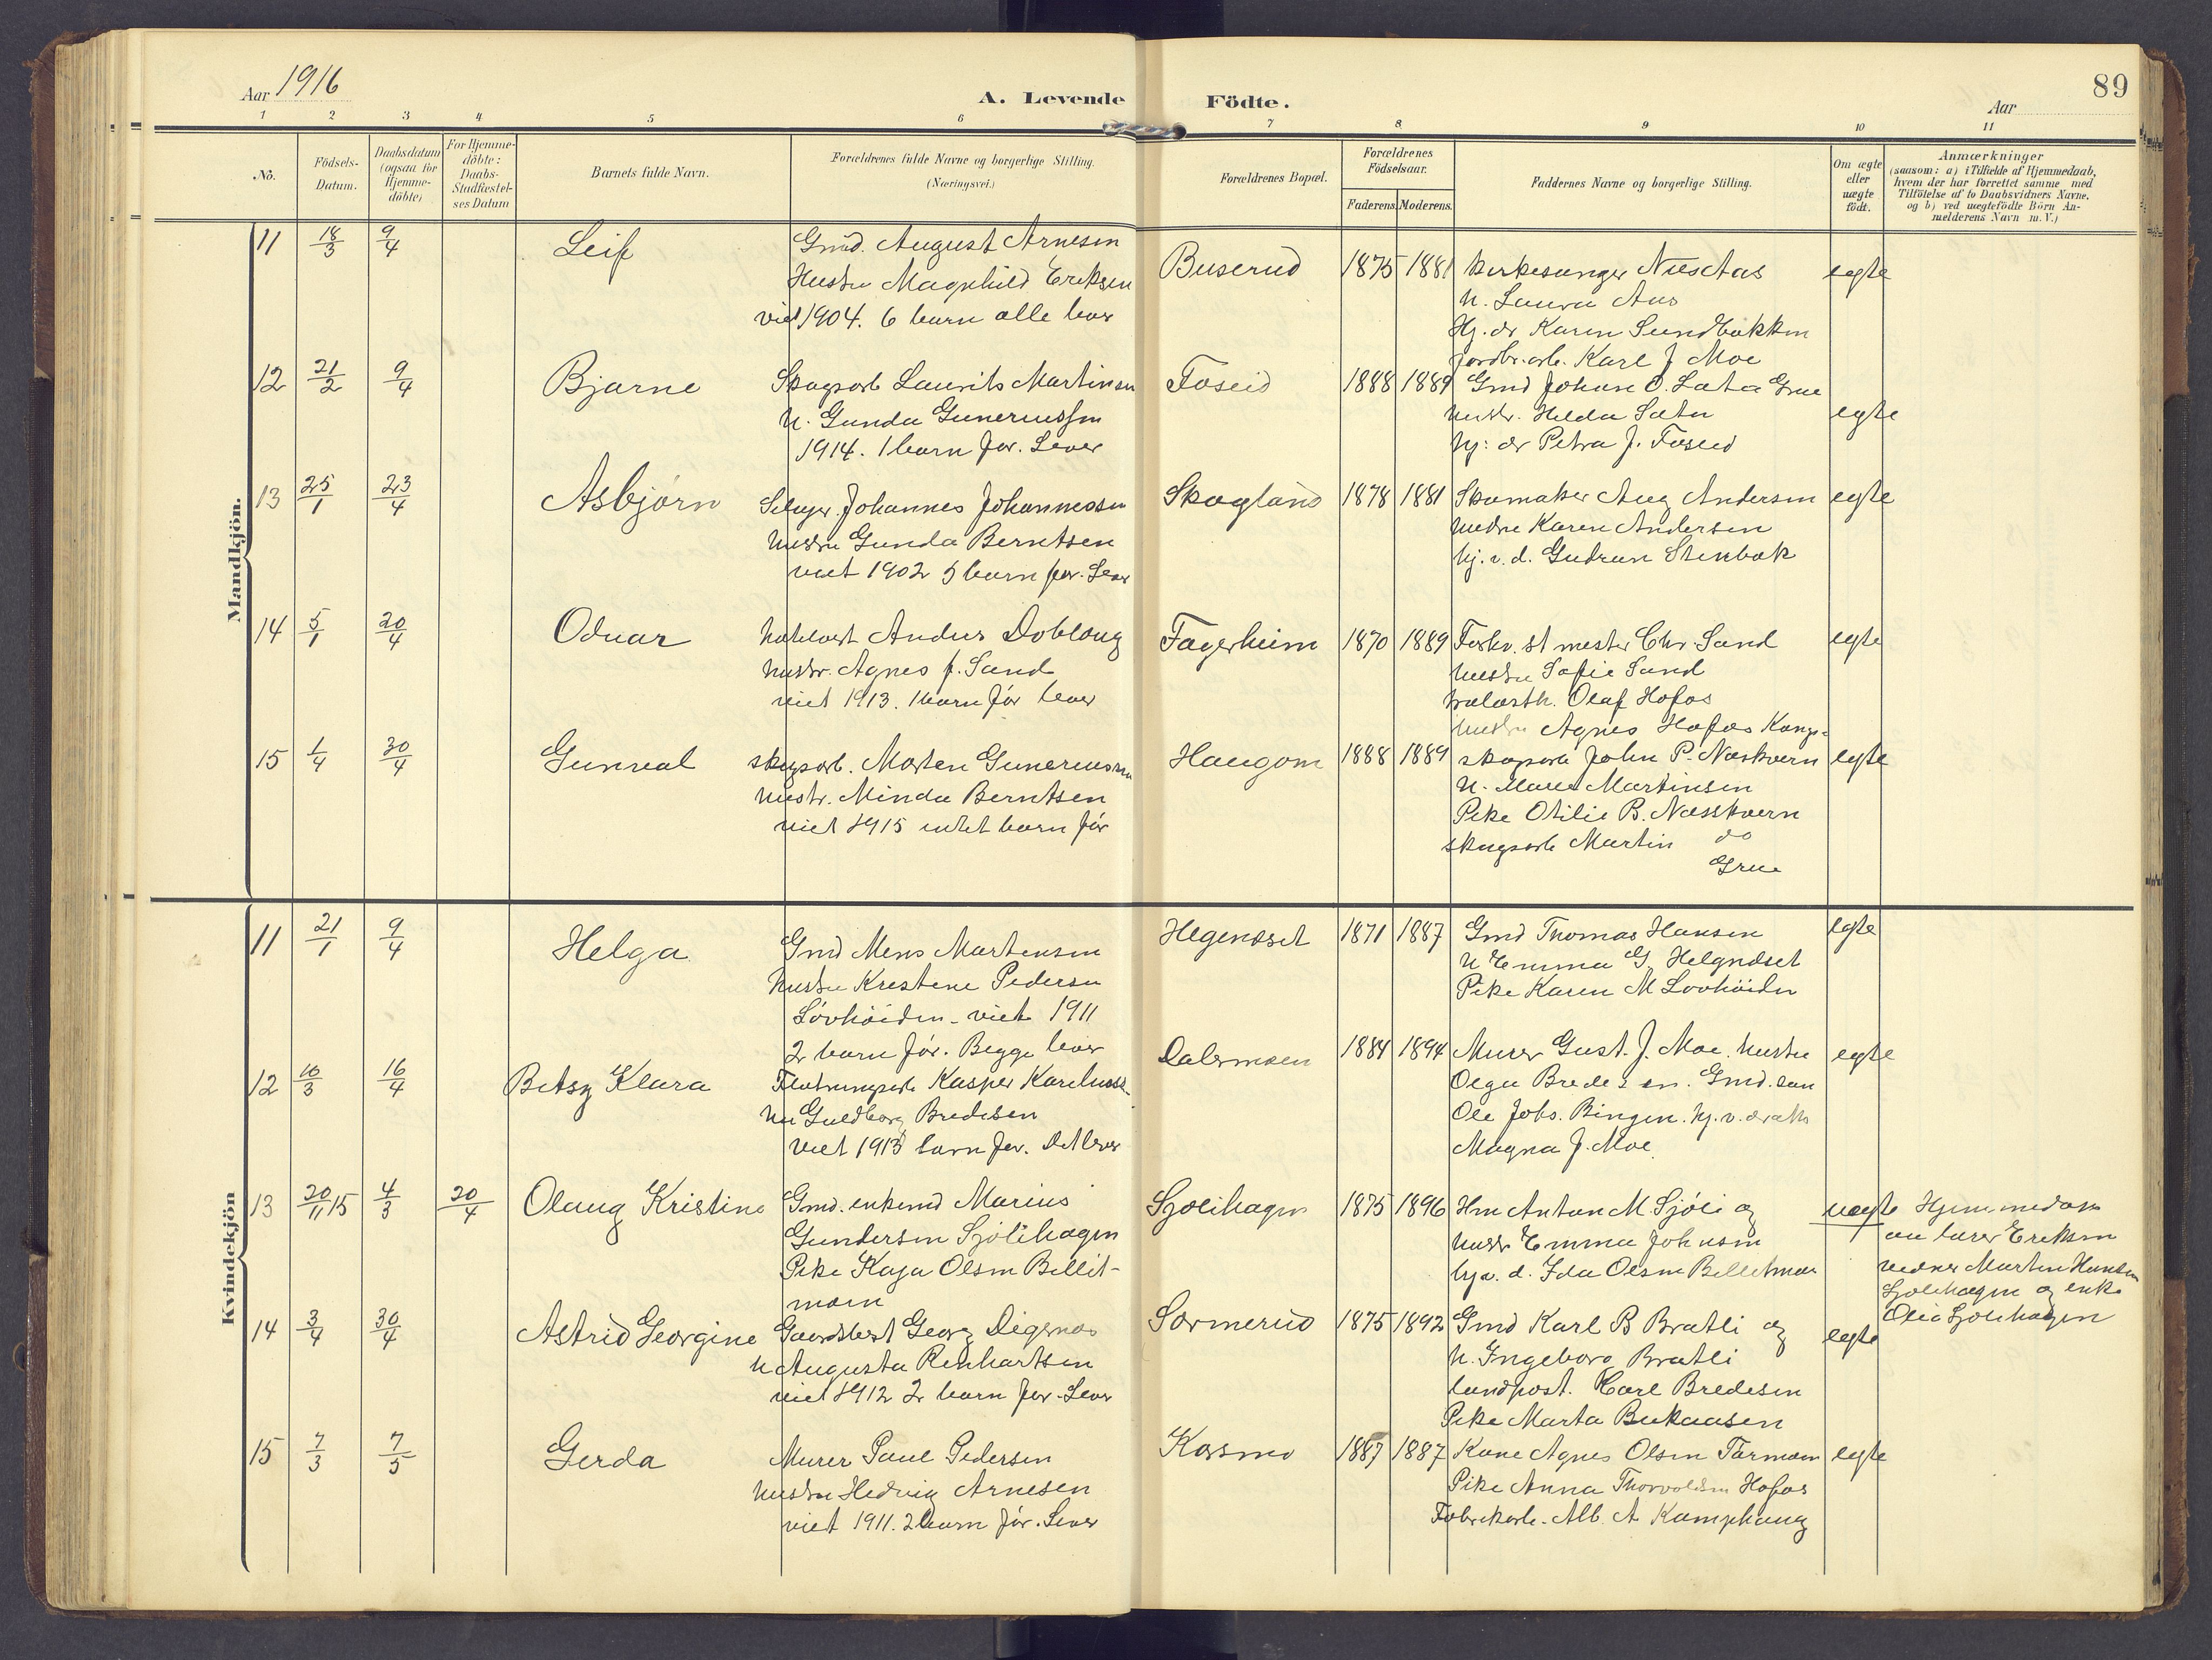 Aar 1916
A. Levende Födte.
Aar
89
1 2 3 4 5 6 7 8 9 10 11
No.
Födsels-Datum.
Daabsdatum (ogsaa for Hjemme-döbte)
For Hjemme-döbte: Daabs-Stadfæstel-ses Datum
Barnets fulde Navn.
Forældrenes fulde Navne og borgerlige Stilling.
(Næringsvei.)
Forældrenes Bopæl.
Forældrenes Födselsaar.
Faderens. Moderens.
Faddernes Navne og borgerlige Stilling.
Om ægte eller uægte födt.
Anmærkninger
(saasom: a) i Tilfælde af Hjemmedaab,
hvem der har forrettet samme med
Tilföielse af to Daabsvidners Navne,
og b) ved uægtefödte Börn An-
melderens Navn m. V.)
Mandkjön.
11 18/3 9/4 Leif Gmd. August Arnesen Buserud 1875 1881 kirkesanger Aas egte
Hustru Magnhild Eriksen h. Laura Aas
viet 1904. 6 barn alle lever Hj. dr Karen Sundbakken
jordbr. arb. Karl J Moe
12 21/2 9/4 Bjarne Skogsarb Laurits Martinsen Foseid 1888 1889 Gmd Johan O. Grue
h. Gunda Guneriussen hustr. Hilda egte
1914. 1 barn før. Lever hj: dr Petra J. Foseid
13 25/1 23/4 Asbjørn Johannes Johannessen Skogland 1878 1881 Skomaker Aug Andersen egte
hustru Gunda Berntsen hustru Karen Andersen
viet 1902 5 barn før. Lever hj. v. d. Gudrun Stenbæk
14 5/1 20/4 Odvar Dobloug Fagerheim 1870 1889 st mester Chr Sand egte
hustr. Agnes f. Sand hustru Sofie Sand
viet 1913. 1 barn før lever Olaf Hofos
hustru Agnes Hofos
15 1/4 30/4 Gunval skogsarb. Morten Guneriussen Haugom 1888 1889 skogsarb John P. Næskvern egte
hustr. Minda Berntsen h. Martinsen
viet 1915 intet barn før Pike Otilie B. Næsskvern
skogsarb Martin do
Grue
Kvindekjön
11 21/1 9/4 Helga Gmd Mens Martensen 1871 1887 Gmd Thomas Hansen egte
hustru Krestene Pedersen h Emma G
Lövhöiden - viet 1911 Pike Karen M Lovhöiden
2 barn før. Begge lever
12 16/3 16/4 Betsy Klara Kasper Dalermoen 1884 1894 Murer Gust. J. Moe. hustru egte
hu Guldborg Bredesen Olga Bredesen. Gmd. søn
viet 1913 barn før. Det lever Ole Johs. Bingen. hj. v.
Magna J. Moe
13 20/11 15 4/3 20/4 Olaug Kristine Gmd. enkemd Marius Sjølihagen 1875 1896 Anton M. Sjöli og uegte Hjemmedøpt
Gundersen Sjölihagen hustr Emma Johnsen av lærer Eriksen
Pike Kaja Olsen Bellit- d. Ida Olsen vidner Martin Hansen
moen Sjølihagen og enke
Olea Sjølihagen
14 3/4 30/4 Astrid Georgine Georg Digernes Sormerud 1875 1892 Gmd Karl B Bratli og egte
h Augusta Renhartsen h. Ingeborg Bratli
viet 1912 2 barn før. Lever landpost. Carl Bredesen
Pike Marta
15 7/3 7/5 Gerda Murer Paul Pedersen Kosmo 1887 1887 Kone Agnes Olsen egte
hustru Hedvig Arnesen Pike Anna Thorvaldsen Hofos
viet 1911. 2 barn før. Lever Fabrikarb. Alb. A Kamphaug